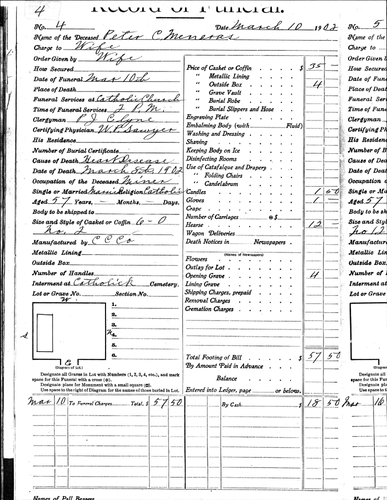 4
Record of Funeral.
No. 4 Date March 10 1902
Name of the Deceased Peter C. Meneras
Charge to Wife
Order Given by Wife
How Secured
Date of Funeral Mar 10th
Place of Death
Funeral Services at Catholic Church
Time of Funeral Services 2 P.M.
Clergyman P J Clyne
Certifying Physician W. P. Sawyer
His Residence
Number of Burial Certificate
Cause of Death Heart Disease
Date of Death March 8th 1902
Occupation of the Deceased Miner
Single or Married Religion Catholic
Aged 57 Years, - Months, Days
Body to be shipped to
Size and Style of Casket or Coffin 6-0
No. 2
Manufactured by C C Co
Metallic Lining
Outside Box
Number of Handles
Interment at Catholick Cemetery.
Lot or Grave No. Section No.
W
1.
2.
3.
4.
5.
6.
(Diagram of Lot.)
Designate all Graves in Lot with Numbers (1, 2, 3, 4, etc.), and mark
space for this Funeral with a cross (+).
Designate place for Monument with a small square (□).
Use space to the right of Diagram for the names of those buried in Lot.
Price of Casket or Coffin $ 35 -
" Metallic Lining
" Outside Box 4
" Grave Vault
" Burial Robe
" Burial Slippers and Hose
Engraving Plate
Embalming Body (with Fluid)
Washing and Dressing
Shaving
Keeping Body on Ice
Disinfecting Rooms
Use of Catafalque and Drapery
" Folding Chairs
" Candelabrum
Candles 50
Gloves 1
Crape
Number of Carriages @ $
Hearse 12
Wagon Deliveries
Death Notices in Newspapers
(Names of Newspapers)
Flowers
Outlay for Lot
Opening Grave 4
Lining Grave
Shipping Charges, prepaid
Removal Charges
Cremation Charges
Total Footing of Bill $ 57 50
By Amount Paid in Advance
Balance
Entered into Ledger, page or below.
Mar 10 To Funeral Charges Total, $ 57 50 By Cash $ 18 50
Names of Pall Bearers
No. 5
Name of
Charge to
Order Giv
How Secur
Date of Fu
Place of D
Funeral S
Time of Fu
Clergyman
Certifying
His Resid
Number of
Cause of D
Date of De
Occupation
Single or M
Aged
Body to be
Size and S
No 12
Manufactur
Metallic L
Outside B
Number of
Interment
Lot or Gra
Mar 16